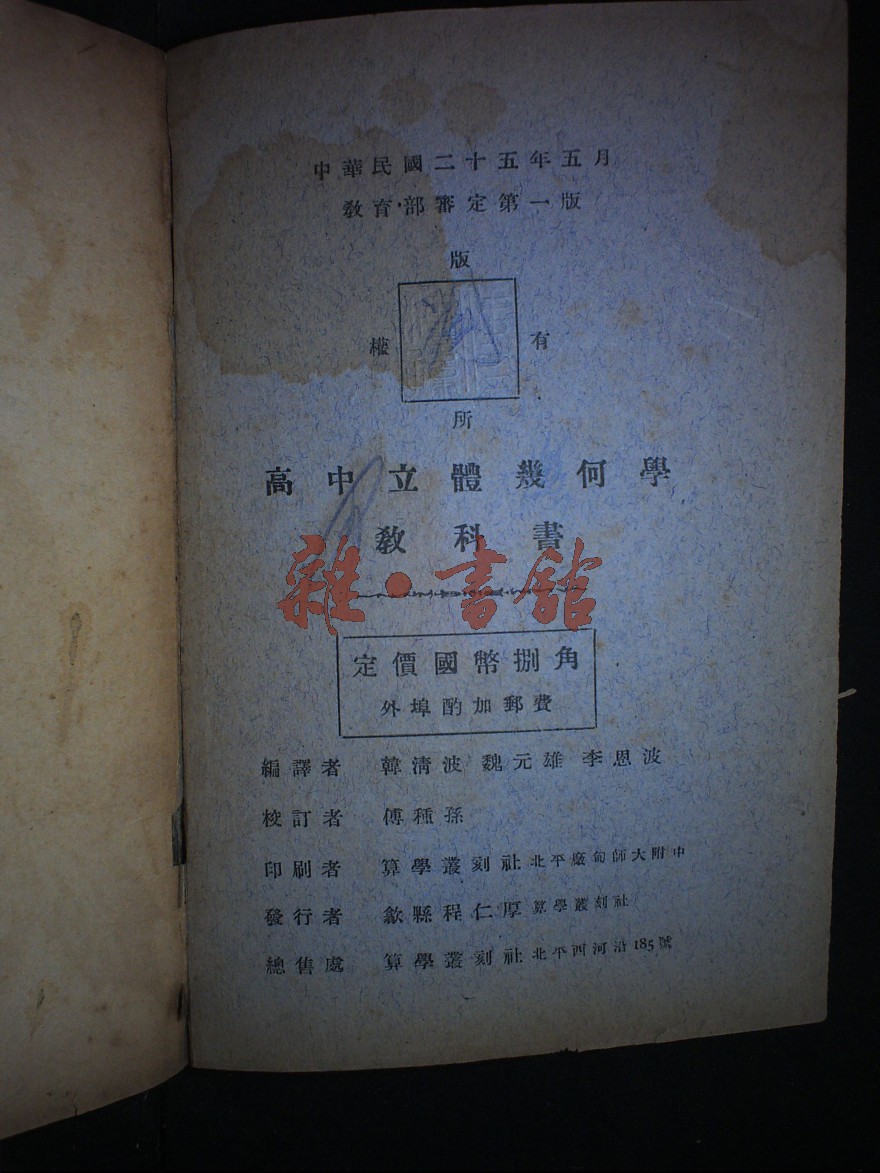 中華民國二十五年五月
教育部審定第一版
版
權 有
所
高中立體幾何學
教科書
雜·書館
定價國幣捌角
外埠酌加郵費
編譯者 韓清波 魏元雄 李恩波
校訂者 傅種孫
印刷者 算學叢刻社 北平廠甸師大附中
發行者 歙縣程仁厚 算學叢刻社
總售處 算學叢刻社 北平西河沿185號